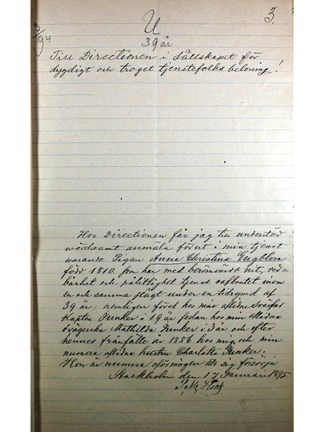 3.
U
39 år
Till Directionen i Sällskapet för
dygdigt och troget tjenstefolks belöning!
Hos Directionen får jag
vördsamt anmäla förut i min tjenst
varande Pigan Anna Christina
född 1810, hon har med berömvärdt nit,
barhet och pålitlighet tjenat oafbrutet inom
en och samma slägt under en tidrymd af
39 år, nemligen först hos min aflidne Svärfar
Kapten Junker i 19 år sedan hos min aflidna
Svägerska Mathilda Junker i år och efter
hennes frånfälle år 1856 hos mig och min
numera aflidna hustru Charlotta Junker.
Hon är numera oförmögen att sig försörja
Stockholm den 17 Januari 1895